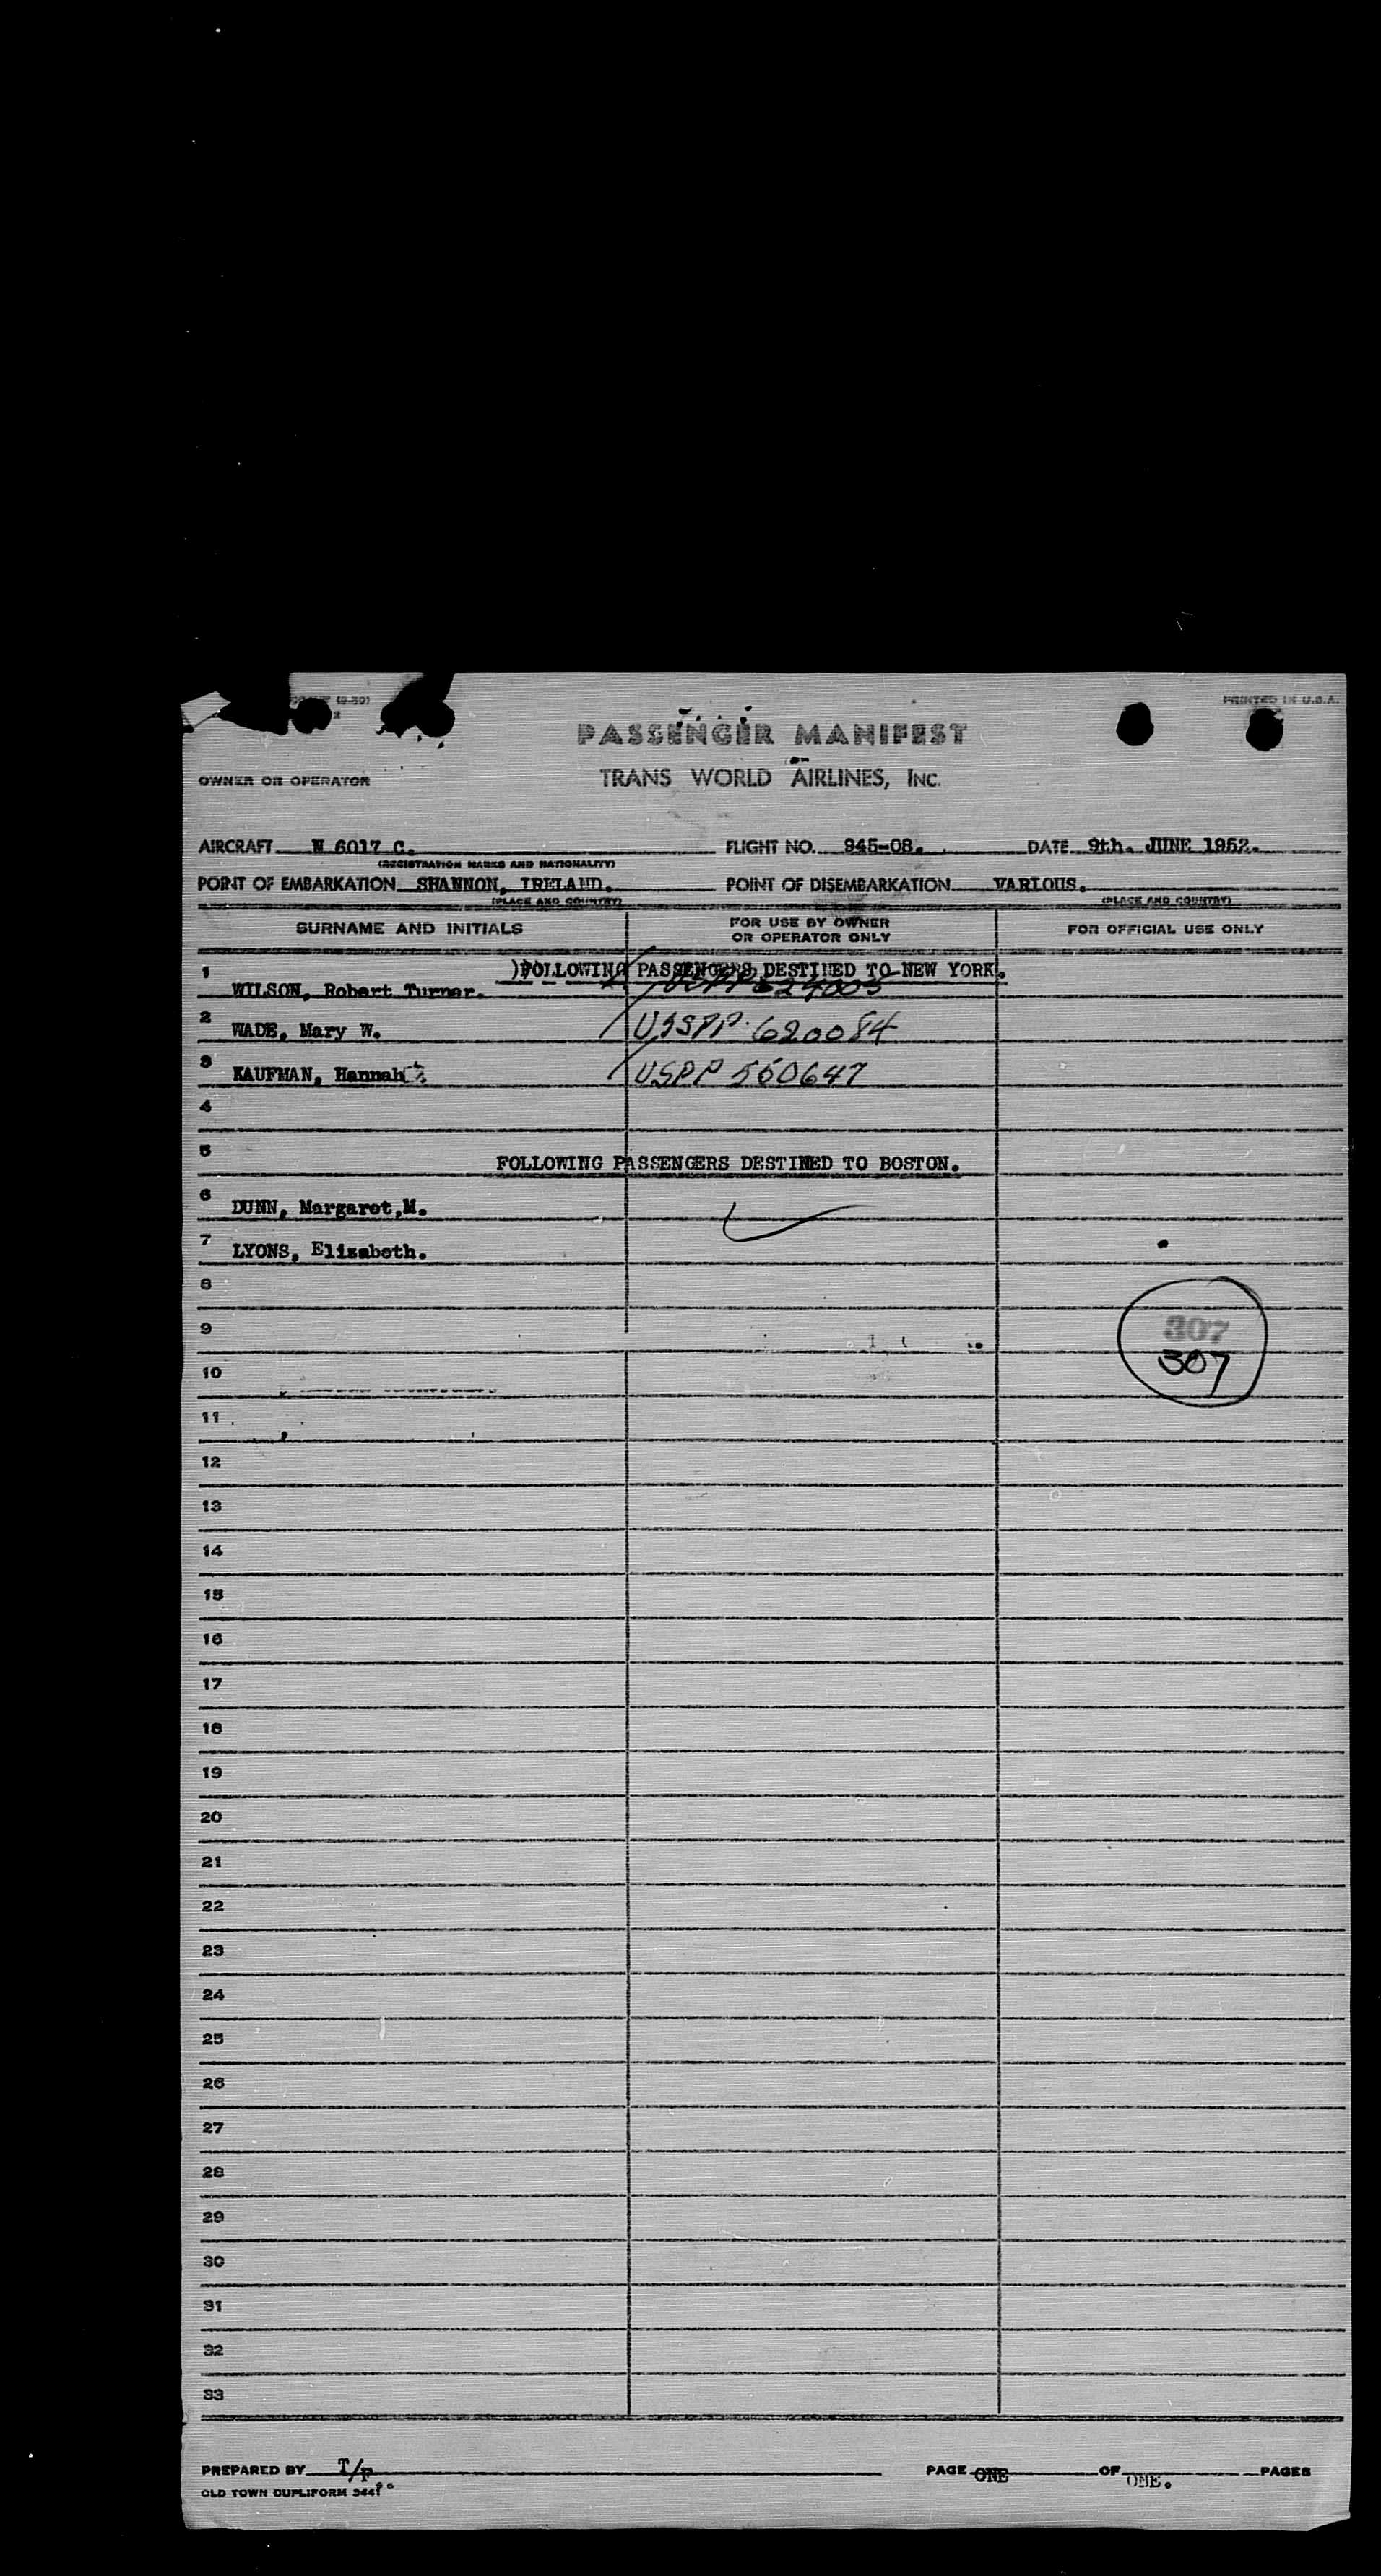 (9-50)
2
PRINTED IN U.S.A.
PASSENGER MANIFEST
OWNER OR OPERATOR
TRANS WORLD AIRLINES, INC.
AIRCRAFT N 6017 C. FLIGHT NO. 945-08. DATE 9th. JUNE 1952.
(REGISTRATION MARKS AND NATIONALITY)
POINT OF EMBARKATION SHANNON, IRELAND. POINT OF DISEMBARKATION VARIOUS.
(PLACE AND COUNTRY) (PLACE AND COUNTRY)
SURNAME AND INITIALS FOR USE BY OWNER OR OPERATOR ONLY FOR OFFICIAL USE ONLY
FOLLOWING PASSENGERS DESTINED TO NEW YORK.
1 WILSON, Robert Turner.
2 WADE, Mary W. USSPP. 620084
3 KAUFMAN, Hannah USPP 550647
4
5 FOLLOWING PASSENGERS DESTINED TO BOSTON.
6 DUNN, Margaret,M.
7 LYONS, Elizabeth.
8
9 307
10 307
11
12
13
14
15
16
17
18
19
20
21
22
23
24
25
26
27
28
29
30
31
32
33
PREPARED BY T/P PAGE ONE OF ONE. PAGES
OLD TOWN DUPLIFORM